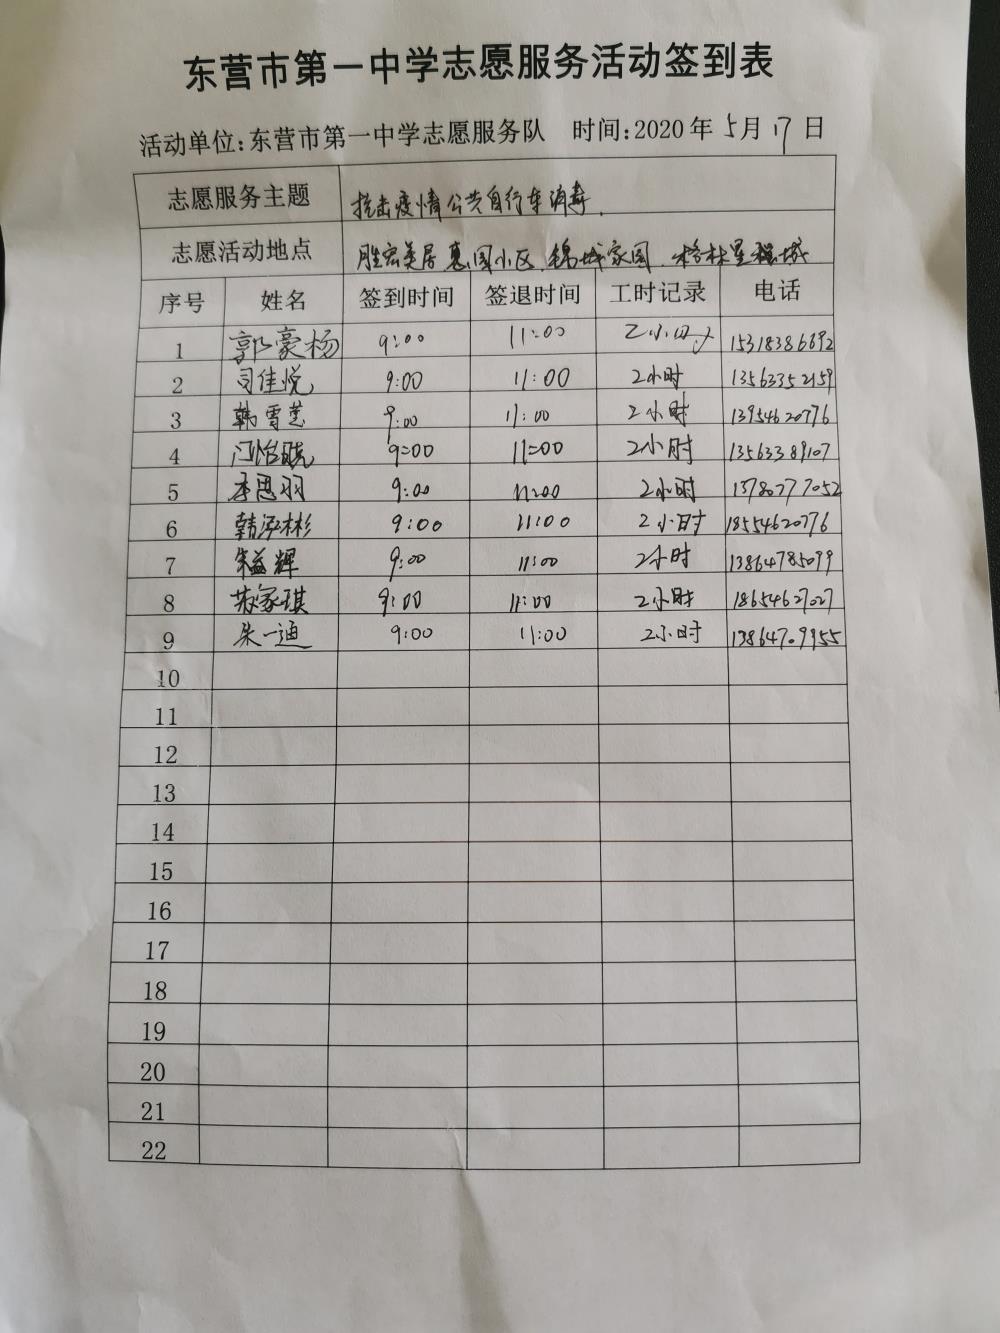 东营市第一中学志愿服务活动签到表
活动单位:东营市第一中学志愿服务队 时间:2020年5月17日
志愿服务主题 抗击疫情公共自行车消毒.
志愿活动地点 胜宏美居 惠园小区.锦城家园.格林星程城
序号 姓名 签到时间 签退时间 工时记录 电话
1 郭豪杨 9:00 11:00 2小时 15318386892
2 司佳悦 9:00 11:00 2小时 13563352159
3 韩雪芝 9:00 11:00 2小时 13954620776
4 门怡晓 9:00 11:00 2小时 13563389107
5 李思羽 9:00 11:00 2小时 13780777052
6 韩泓彬 9:00 11:00 2小时 18554620776
7 朱益辉 9:00 11:00 2小时 13864785099
8 苏家琪 9:00 11:00 2小时 18654627027
9 朱一迪 9:00 11:00 2小时 13864709955
10
11
12
13
14
15
16
17
18
19
20
21
22